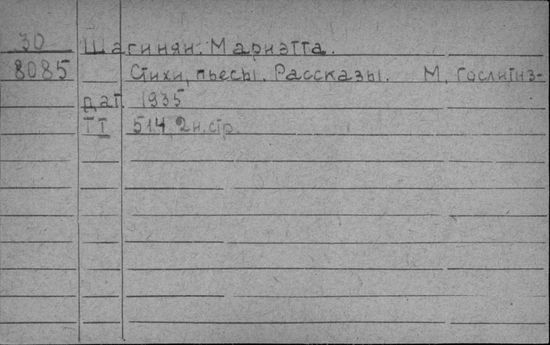 30 Шагинян. Мариэтта.
8085 Стихи, пьесы. Рассказы. М, Гослитиз-
дат 1935
TI 514, 2н. стр.